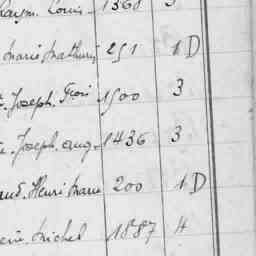 Raym. Louis 1368 3
Marie Mathurin 251 1 D
Joseph. 1500 3
Joseph. aug. 1436 3
Henri Marie 200 1 D
Michel 1887 4